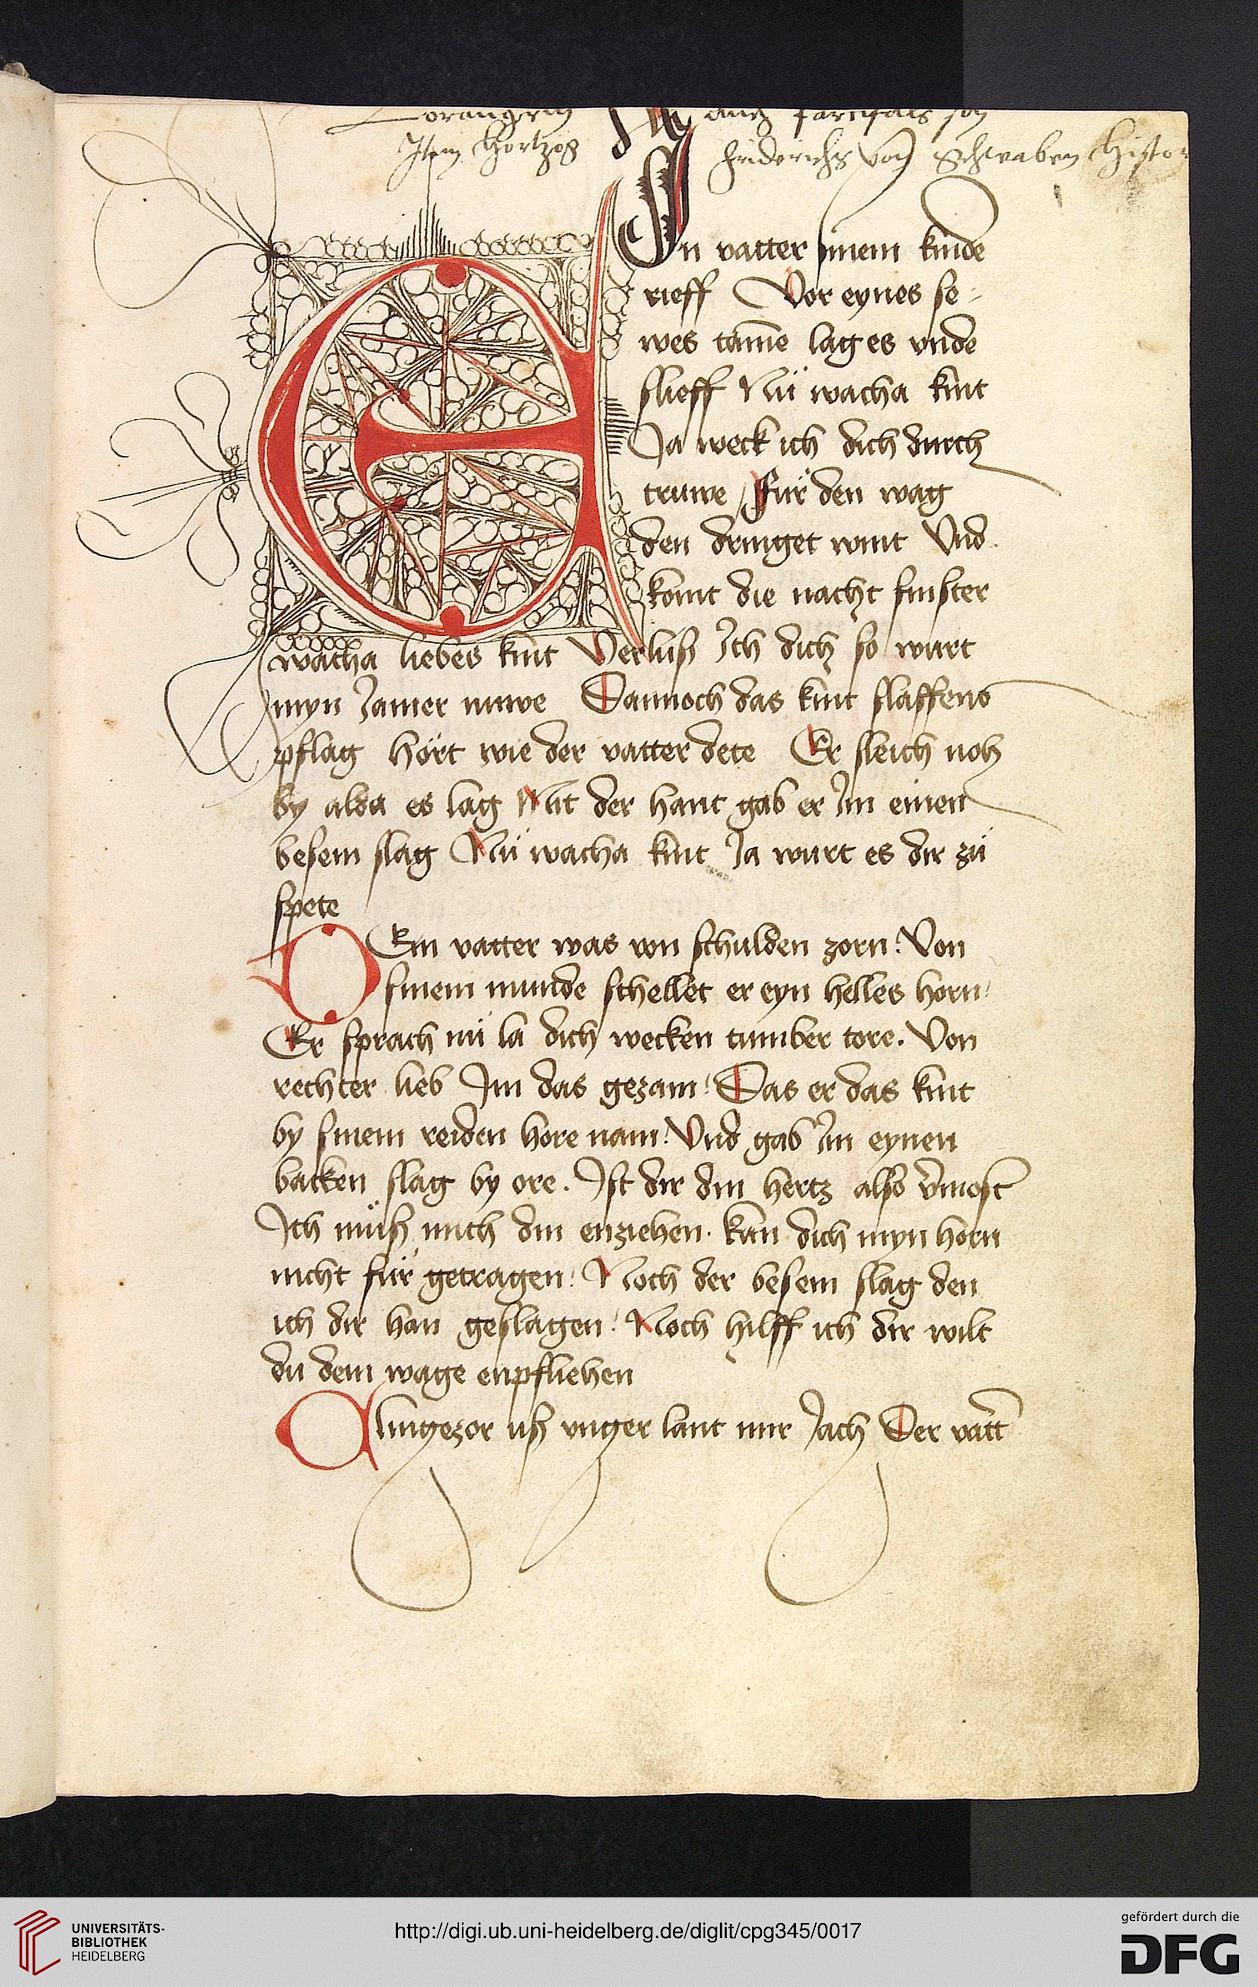 Lorangrin auch parcifals son
Item Hertzog friderichs von Schwaben Histor
EIn vatter sinem kinde
rieff Vor eynes se-
wes tam̄e lag es vnde
slieff Nü wacha kint
Ja weck ich dich durch
truwe Für den wag
den dringet wint Vnd
komt die nacht finster
wacha liebes kint Verlüß Ich dich so wurt
myn Jamer nuwe Dannoch das kint slaffens
pflag hört wie der vatter dete Er sleich noh
by alda es lag Mit der hant gab er Im einen
besem slag Nü wacha kint Ja wurt es dir zü
spete
DEm vatter was von schulden zorn: Von
sinem munde schellet er eyn helles horn:
Er sprach nü la dich wecken tumber tore. Von
rechter lieb Im das gezam: Das er das kint
by sinem reiden hore nam: Vnd gab Im eynen
backen slag by ore. Ist dir din hertz also v̄most
Ich müß mich din enziehen. kan dich myn horn
nicht für getragen: Noch der besem slag den
ich dir han geslagen: Noch hilff ich dir wilt
du dem wage enpfliehen
Clingezor uß vnger lant mir Jach Der vatt̄
UNIVERSITÄTS-
BIBLIOTHEK
HEIDELBERG
http://digi.ub.uni-heidelberg.de/diglit/cpg345/0017
gefördert durch die
DFG